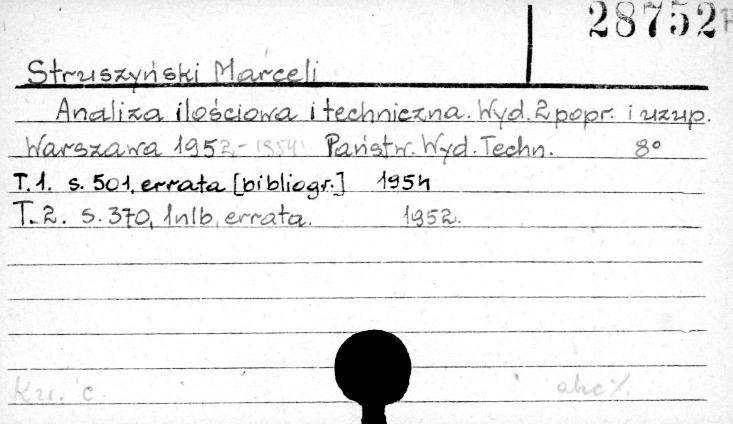 28752
Struszyński Marceli
Analiza ilościowa i techniczna. Wyd. 2 popr. i uzup.
Warszawa 1952-1954 Państw. Wyd. Techn. 8°
T. 1. s. 501, errata [bibliogr.] 1954
T. 2. s. 370, 1nlb, errata. 1952.